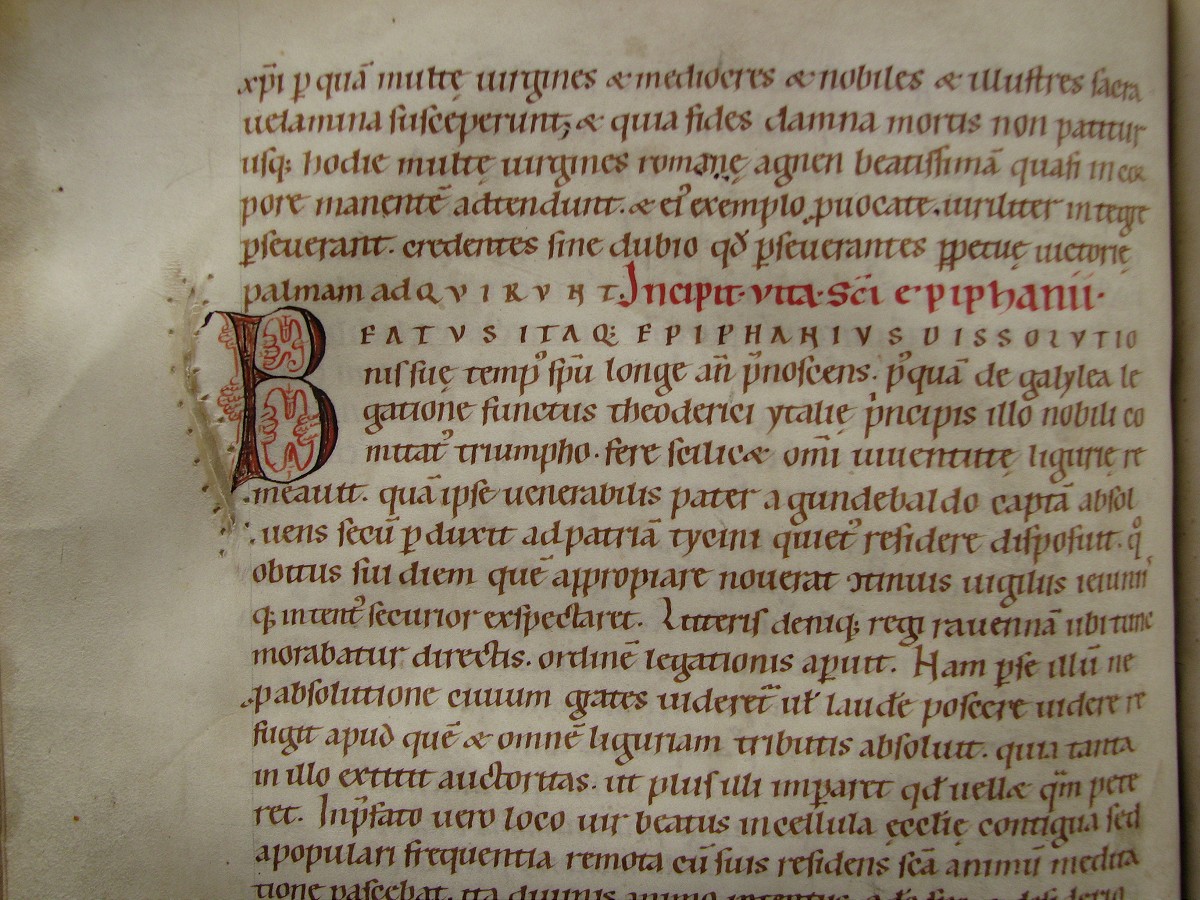 xp̄i ꝑ quā multę uirgines & mediocres & nobiles & illustres sacra
uelamina susceperunt; & quia fides damna mortis non patitur
usq; hodie multę uirgines romanę agnen beatissimā quasi in cor
pore manentē adtendunt. & eiꝰ exemplo ꝓuocate. uiriliter integrę
ꝑseuerant. credentes sine dubio qđ ꝑseuerantes ꝑpetuę uictorię
palmam adQVIRVNT. Incipit. vita. Sc̄i epiphanii.
BEATVS ITAQ; EPIPHANIVS DISSOLVTIO
nis suę tempꝰ sp̄u longe an̄ p̄noscens. pꝰquā de galylea le
gatione functus theoderici ytalię pͥncipis illo nobili co
mitatꝰ triumpho. fere scilic& omī iuuentutę ligurię re
meauit. quā ipse uenerabilis pater a gundebaldo captā absol
uens secū ꝑduxit ad patriā tycini quietꝰ residere disposuit. qͦ
obitus sui diem quē appropiare nouerat ɔtinuis uigiliis ieiunii
q; intentꝰ securior exspectaret. Litteris deniq; regi rauennā ubi tunc
morabatur directis. ordinē legationis aperuit. Nam ꝑ se illū ne
ꝓ absolutione ciuium grates uideret̄ ut laudē poscere uidere re
fugit apud quē & omnē liguriam tributis absoluit. quia tanta
in illo extitit auctoritas. ut plus illi imparet qđ uell& qm̄ pete
ret. In p̄fato uero loco uir beatus in cellula ęcclię contigua sed
a populari frequentia remota cū suis residens sc̄ā animū medita
tione pascebat. ita diuinis animo intentus